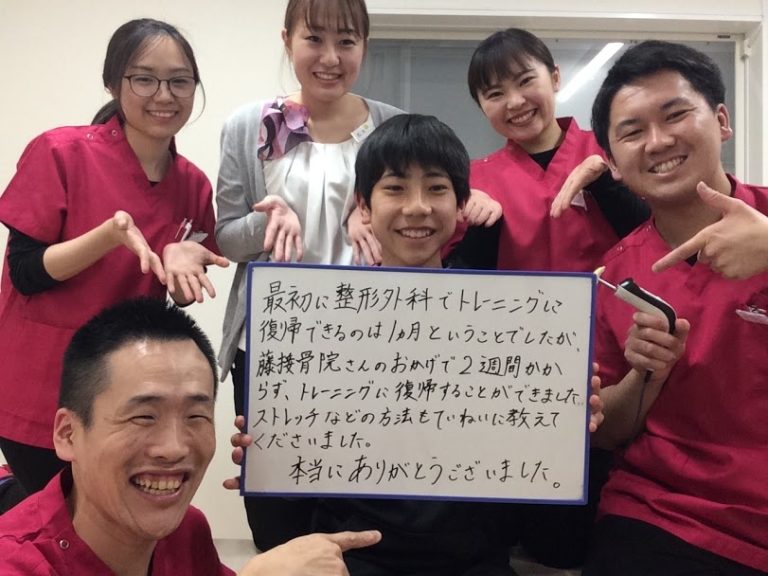 最初に整形外科でトレーニングに
復帰できるのは1ヵ月ということでしたが、
藤接骨院さんのおかげで2週間かか
らず、トレーニングに復帰することができました。
ストレッチなどの方法もていねいに教えて
くださいました。
本当にありがとうございました。